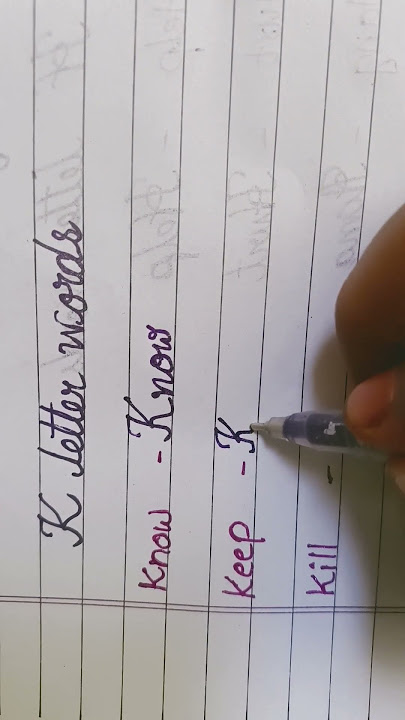 K letter words
Know - Know
Keep - K
Kill -